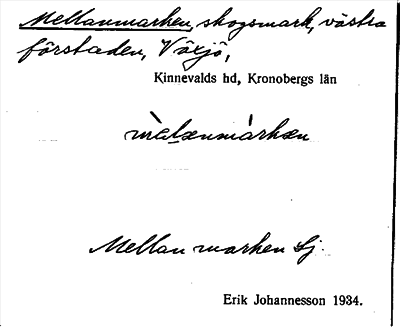 Mellanmarken, skogsmark, västra
förstaden, Växjö,
Kinnevalds hd, Kronobergs län
Mellan marken Sj.
Erik Johannesson 1934.